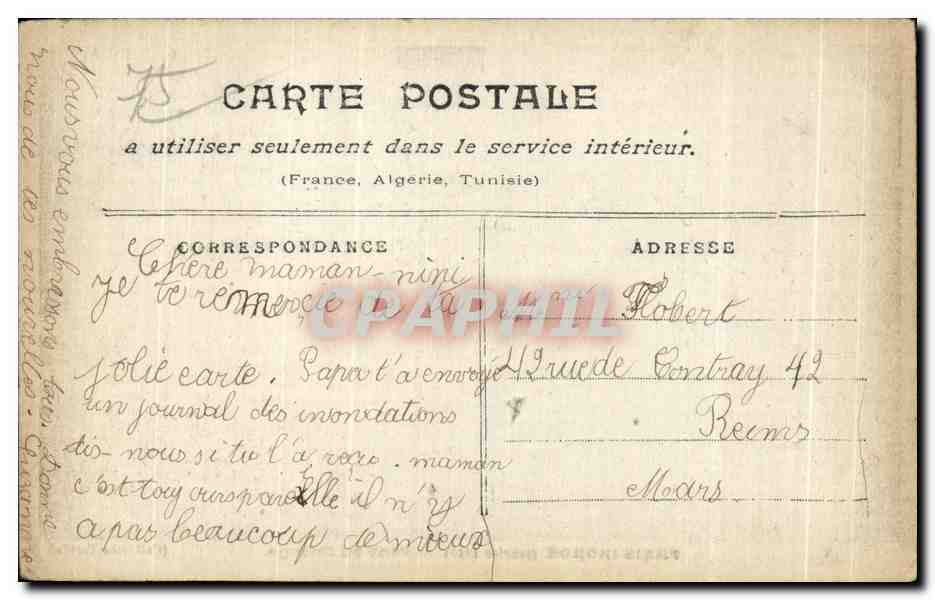 75
CARTE POSTALE
a utiliser seulement dans le service intérieur.
(France, Algérie, Tunisie)
CORRESPONDANCE
Chère maman nini
je te remercie de ta
jolie carte. Papa t'a envoyé
un journal des inondations
dis-nous si tu l'a reçu. maman
c'est toujours pareille il n'y
a pas beaucoup de mieux
Nous vous embrassons tous Donne
nous de tes nouvelles.
ADRESSE
Mme Robert
42 rue de Contray 42
Reims
Mars
CPAPHIL